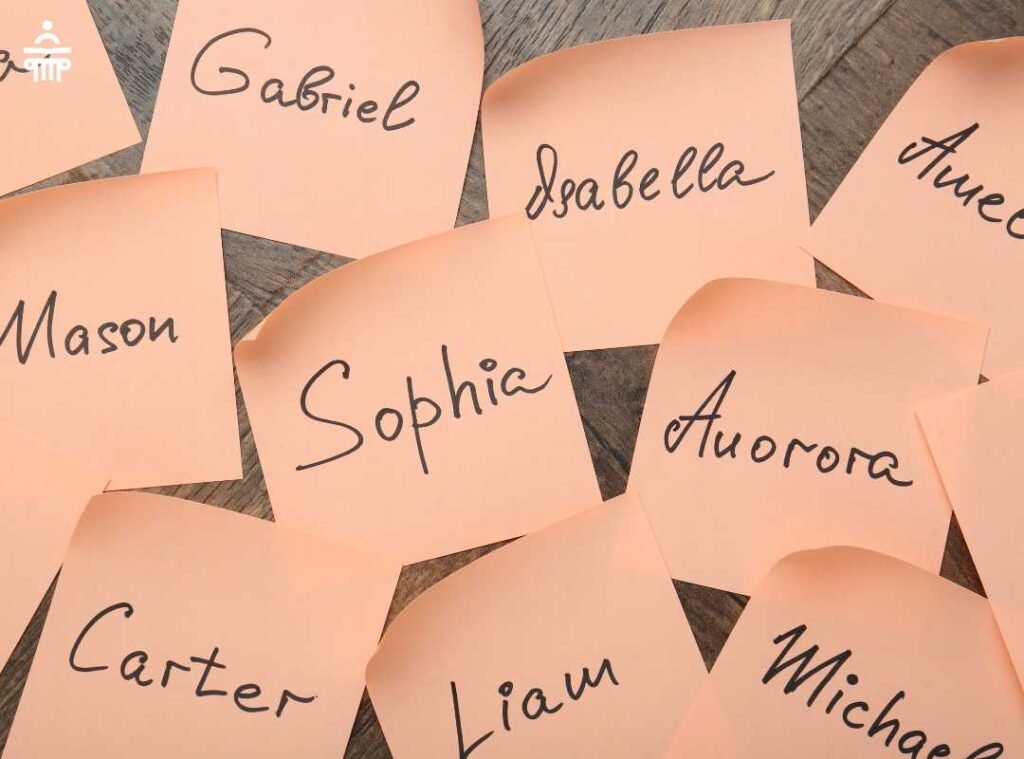 Gabriel
Isabella
Amel
Mason
Sophia
Auorora
Carter
Liam
Michael